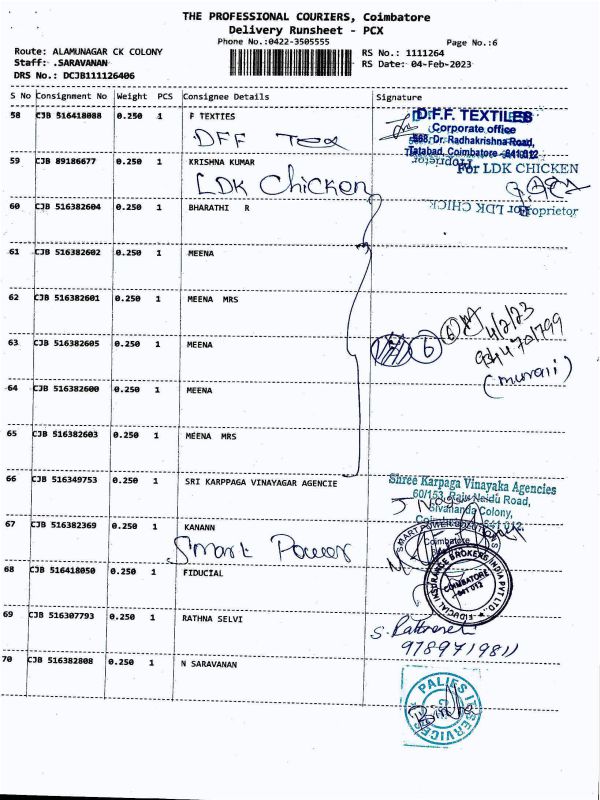 THE PROFESSIONAL COURIERS, Coimbatore
Delivery Runsheet - PCX
Phone No.:0422-3505555
Page No.:6
Route: ALAMUNAGAR CK COLONY
RS No.: 1111264
Staff: .SARAVANAN
RS Date: 04-Feb-2023
DRS No.: DCJB111126406
S No Consignment No Weight PCS Consignee Details Signature
58 CJB 516418088 0.250 1 F TEXTIES
DFF Tex
D.F.F. TEXTILES
Corporate office
568, Dr. Radhakrishna Road,
Tatabad, Coimbatore - 641 012
Proprietor
59 CJB 89186677 0.250 1 KRISHNA KUMAR
LDK Chicken
For LDK CHICKEN
60 CJB 516382604 0.250 1 BHARATHI R
For LDK CHICK
Proprietor
61 CJB 516382602 0.250 1 MEENA
62 CJB 516382601 0.250 1 MEENA MRS
4/2/23
63 CJB 516382605 0.250 1 MEENA
6
6
(murali)
64 CJB 516382600 0.250 1 MEENA
65 CJB 516382603 0.250 1 MEENA MRS
66 CJB 516349753 0.250 1 SRI KARPPAGA VINAYAGAR AGENCIE
Shree Karpaga Vinayaka Agencies
60/153, Raju Naidu Road,
Sivananda Colony,
641 012.
67 CJB 516382369 0.250 1 KANANN
Smart Power
SMART POWER
Coimbatore
68 CJB 516418050 0.250 1 FIDUCIAL
FIDUCIAL INSURANCE BROKERS INDIA PVT LTD.
COIMBATORE
641 012
69 CJB 516307793 0.250 1 RATHNA SELVI
9789719811
70 CJB 516382808 0.250 1 N SARAVANAN
PALIES IT SERVICES